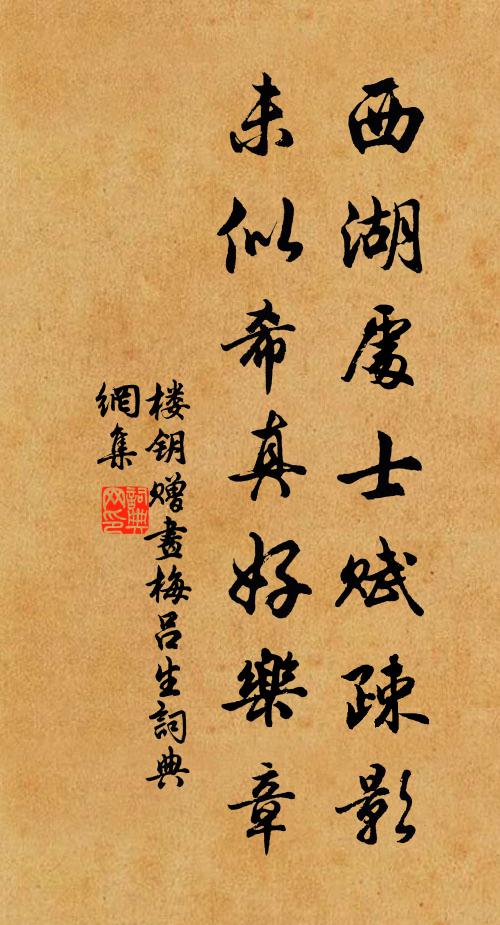 西湖處士賦疎影
未似希真好樂章
楼钥赠畫梅吕生詞典
網集
詞典网印